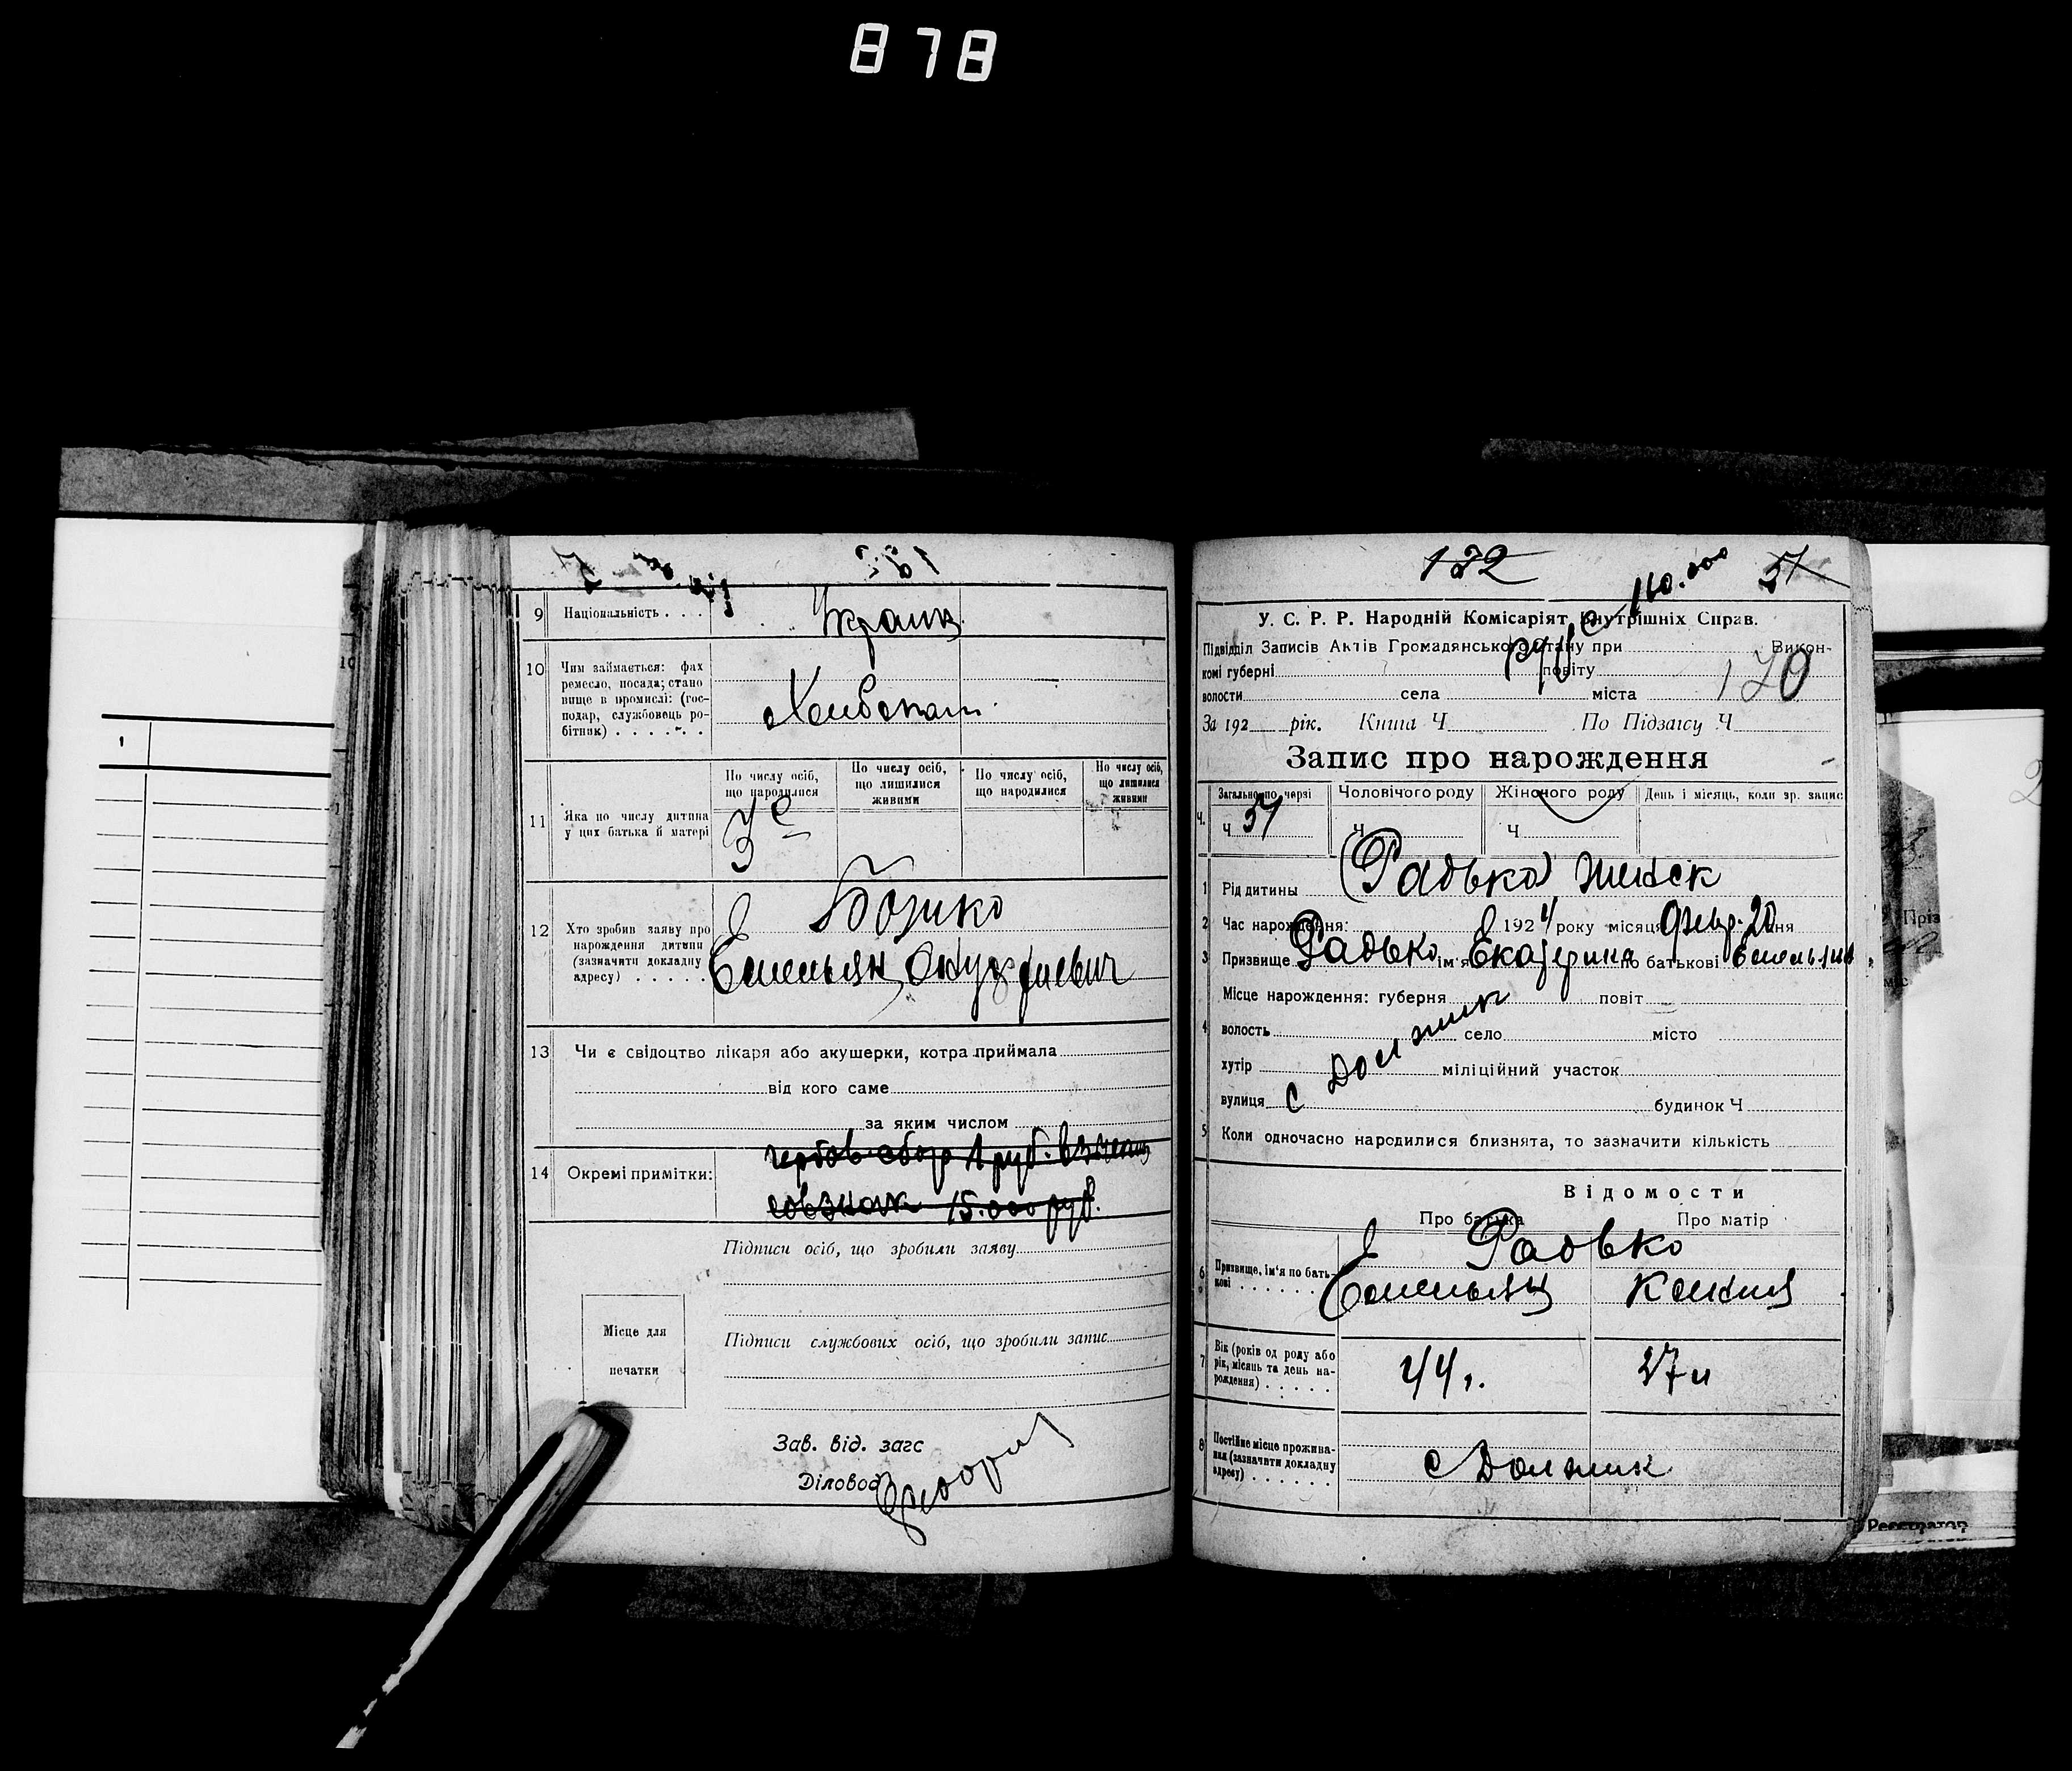 878
9 Національність . . . . Украин
10 Чим займається: фах
ремесло, посада; стано
вище в промислі: (гос-
подар, службовець ро-
бітник) . . . . . .
Хлебопаш.
По числу осіб, що народилося
По числу осіб, що лишилися живими
По числу осіб, що народилися
По числу осіб, що лишилися живими
11 Яка по числу дитина
у цих батька й матері
3е
12 Хто зробив заяву про
нарождення дитини
(зазначити докладну
адресу) . . . . .
Божко
Емельян Онуфриевич
13 Чи є свідоцтво лікаря або акушерки, котра приймала
від кого саме
за яким числом
14 Окремі примітки:
гербов сбор 1 руб. взыскан
совзнак 15.000 руб.
Підписи осіб, що зробили заяву
Місце для
печатки
Підписи службових осіб, що зробили запис
Зав. від. загс
Діловод
132
160.000
51
У. С. Р. Р. Народній Комісаріят Внутрішніх Справ.
Підвідділ Записів Актів Громадянського Стану при Викон-
комі губерні повіту
170
волости села міста
За 192 рік. Книга Ч По Підзагсу Ч
Запис про нарождення
Ч. Загально по черзі Чоловічого роду Жіночого роду День і місяць, коли зр. запис
Ч 51 Ч Ч
1 Рід дитини (Радько) женск
2 Час нарождення: 1924 року місяця февр. 20 дня
3 Призвище Радько ім'я Екатерина по батькові Емельянов
4 Місце нарождення: губерня повіт
волость село місто
хутір міліційний участок
вулиця с Должик будинок Ч
5 Коли одночасно народилися близнята, то зазначити кількість
Відомости
Про батька Про матір
Радько
6 Призвище, ім'я по бать-
кові . . . . . .
Емельян
7 Вік (років од роду або
рік, місяць та день на-
рождення) . . . . .
44 г. 37 л
8 Постійне місце прожива-
ння (зазначити докладну
адресу) . . . . . .
с Должик
Реєстратор